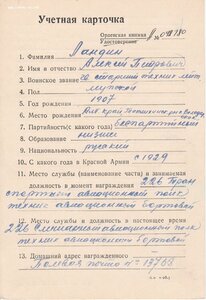 Учетная карточка
Орденская книжка
Удостоверение №
1. Фамилия Ландин
2. Имя и отчество Алексей Петрович
3. Воинское звание старший техник лейт
4. Пол мужской
5. Год рождения 1907
6. Место рождения
7. Партийность (с какого года) беспартийный
8. Образование низшее
9. Национальность русский
10. С какого года в Красной Армии с 1929
11. Место службы (наименование части) и занимаемая
должность в момент награждения 226 Тран
спортный авиационный полк
техник авиационной бортовой
12. Место службы и должность в настоящее время
226 авиационной полк
техник авиационной бортовой
13. Домашний адрес награжденного
Полевая почта №